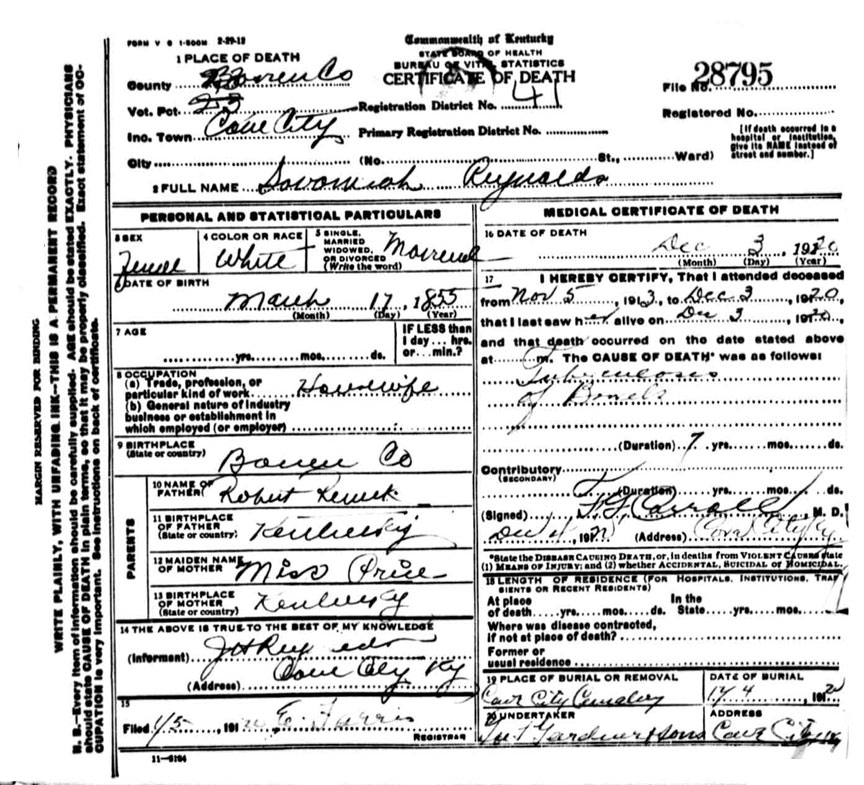 FORM V S 1-500M 2-29-12
Commonwealth of Kentucky
STATE BOARD OF HEALTH
BUREAU OF VITAL STATISTICS
CERTIFICATE OF DEATH
1 PLACE OF DEATH
County Barren Co
File No. 28795
Vot. Pct. 23
Registration District No. 41
Registered No.
Inc. Town Cave City
Primary Registration District No.
[If death occurred in a
hospital or institution,
give its NAME instead of
street and number.]
City (No. St., Ward)
2 FULL NAME Savannah Reynolds
PERSONAL AND STATISTICAL PARTICULARS
3 SEX
Female
4 COLOR OR RACE
White
5 SINGLE,
MARRIED
WIDOWED,
OR DIVORCED
(Write the word)
Married
DATE OF BIRTH
March 17, 1855
(Month) (Day) (Year)
7 AGE
yrs. mos. ds.
IF LESS than
1 day... hrs.
or... min.?
8 OCCUPATION
(a) Trade, profession, or
particular kind of work Housewife
(b) General nature of industry
business or establishment in
which employed (or employer)
9 BIRTHPLACE
(State or country)
Barren Co
PARENTS
10 NAME OF
FATHER
Robert
11 BIRTHPLACE
OF FATHER
(State or country)
Kentucky
12 MAIDEN NAME
OF MOTHER
Miss Price
13 BIRTHPLACE
OF MOTHER
(State or country)
Kentucky
14 THE ABOVE IS TRUE TO THE BEST OF MY KNOWLEDGE
(Informant) J H Reynolds
(Address) Cave City Ky
15
Filed 1/5, 191
REGISTRAR
11-5194
MEDICAL CERTIFICATE OF DEATH
16 DATE OF DEATH
Dec 3, 1920
(Month) (Day) (Year)
17 I HEREBY CERTIFY, That I attended deceased
from Nov 5, 1913, to Dec 3, 1920,
that I last saw her alive on Dec 3, 1920,
and that death occurred on the date stated above
at m. The CAUSE OF DEATH* was as follows:
Tuberculosis
of Bowels
(Duration) 7 yrs. mos. ds.
Contributory
(SECONDARY)
(Duration) yrs. mos. ds.
(Signed) Carroll, M. D.
Dec 191 (Address) Cave City Ky
*State the DISEASE CAUSING DEATH, or, in deaths from VIOLENT CAUSES state
(1) MEANS OF INJURY; and (2) whether ACCIDENTAL, SUICIDAL OR HOMICIDAL.
18 LENGTH OF RESIDENCE (FOR HOSPITALS, INSTITUTIONS, TRANSIENTS OR RECENT RESIDENTS)
At place
of death yrs. mos. ds.
In the
State yrs. mos. ds.
Where was disease contracted,
if not at place of death?
Former or
usual residence
19 PLACE OF BURIAL OR REMOVAL
Cave City Cemetery
DATE OF BURIAL
4, 1920
20 UNDERTAKER
Gardner & Sons
ADDRESS
Cave City Ky
MARGIN RESERVED FOR BINDING
WRITE PLAINLY, WITH UNFADING INK—THIS IS A PERMANENT RECORD
N. B.—Every item of information should be carefully supplied. AGE should be stated EXACTLY. PHYSICIANS
should state CAUSE OF DEATH in plain terms, so that it may be properly classified. Exact statement of OC-
CUPATION is very important. See instructions on back of certificate.